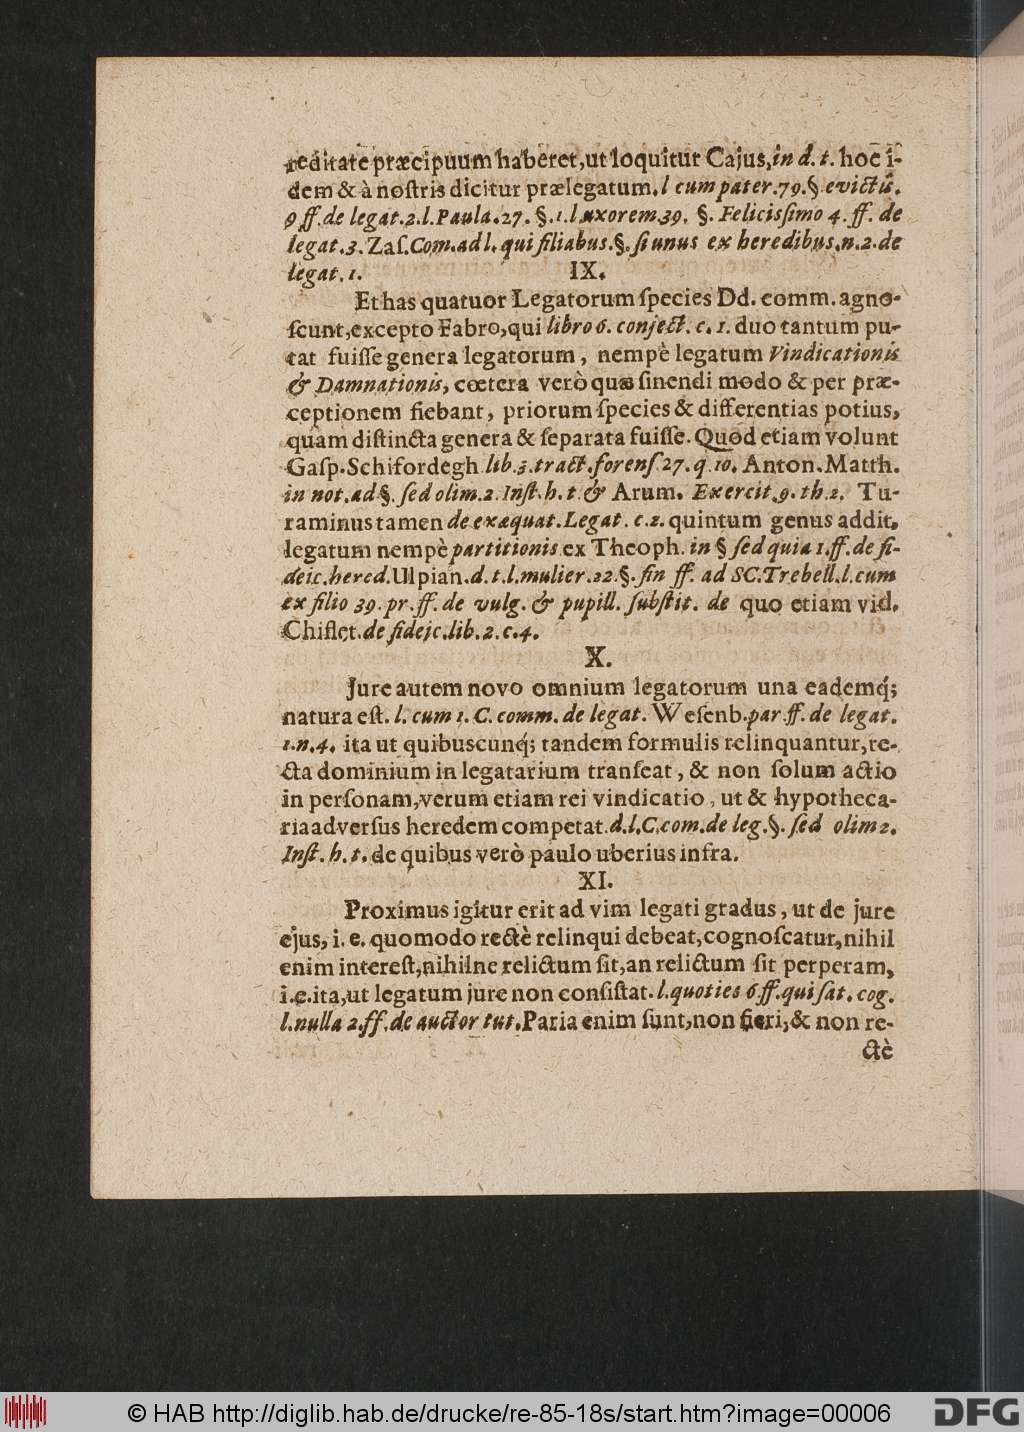 reditate præcipuum haberet,ut loquitur Cajus,in d. t. hoc i-
dem & à noſtris dicitur prælegatum.l cum pater.79.§ evictis.
9 ff. de legat.2.l. Paula.27. §.1.l uxorem 39. §. Feliciſſimo 4. ff. de
legat.3. Zaſ.Com.ad l. qui filiabus.§. ſi unus ex heredibus.n.2.de
legat. 1.
IX.
Et has quatuor Legatorum ſpecies Dd. comm. agno-
ſcunt,excepto Fabro,qui libro 6. conject. c. 1. duo tantum pu-
tat fuiſſe genera legatorum, nempè legatum Vindicationis
& Damnationis, cœtera verò quæ ſinendi modo & per præ-
ceptionem fiebant, priorum ſpecies & differentias potius,
quàm diſtincta genera & ſeparata fuiſſe. Quod etiam volunt
Gaſp. Schifordegh lib.3.tract.forenſ 27. q. 10. Anton. Matth.
in not. ad §. ſed olim.2. Inſt. h. t. & Arum. Exercit.9. th 2. Tu-
raminus tamen de exæquat. Legat. c.2. quintum genus addit,
legatum nempè partitionis ex Theoph. in § ſed quia 1.ff. de fi-
deic.hered.Ulpian.d.t.l.mulier.22.§. fin ff. ad SC.Trebell.l.cum
ex filio 39. pr. ff. de vulg. & pupill. ſubſtit. de quo etiam vid.
Chiflet. de fideic.lib.2.c.4.
X.
Jure autem novo omnium legatorum una eademq́;
natura eſt. l. cum 1. C. comm. de legat. Weſenb. par. ff. de legat.
1.n.4. ita ut quibuscunq́; tandem formulis relinquantur,re-
cta dominium in legatarium tranſeat, & non ſolum actio
in perſonam,verum etiam rei vindicatio, ut & hypotheca-
ria adverſus heredem competat. d.l.C.com.de leg.§. ſed olim 2.
Inſt. h. t. de quibus verò paulo uberius infra.
XI.
Proximus igitur erit ad vim legati gradus, ut de jure
ejus, i. e. quomodo rectè relinqui debeat,cognoſcatur,nihil
enim intereſt,nihilne relictum ſit,an relictum ſit perperam,
i.e.ita,ut legatum jure non conſiſtat. l.quoties 6 ff.qui ſat. cog.
l.nulla 2.ff.de auctor tut.Paria enim ſunt,non fieri,& non re-
ctè
© HAB http://diglib.hab.de/drucke/re-85-18s/start.htm?image=00006
DFG